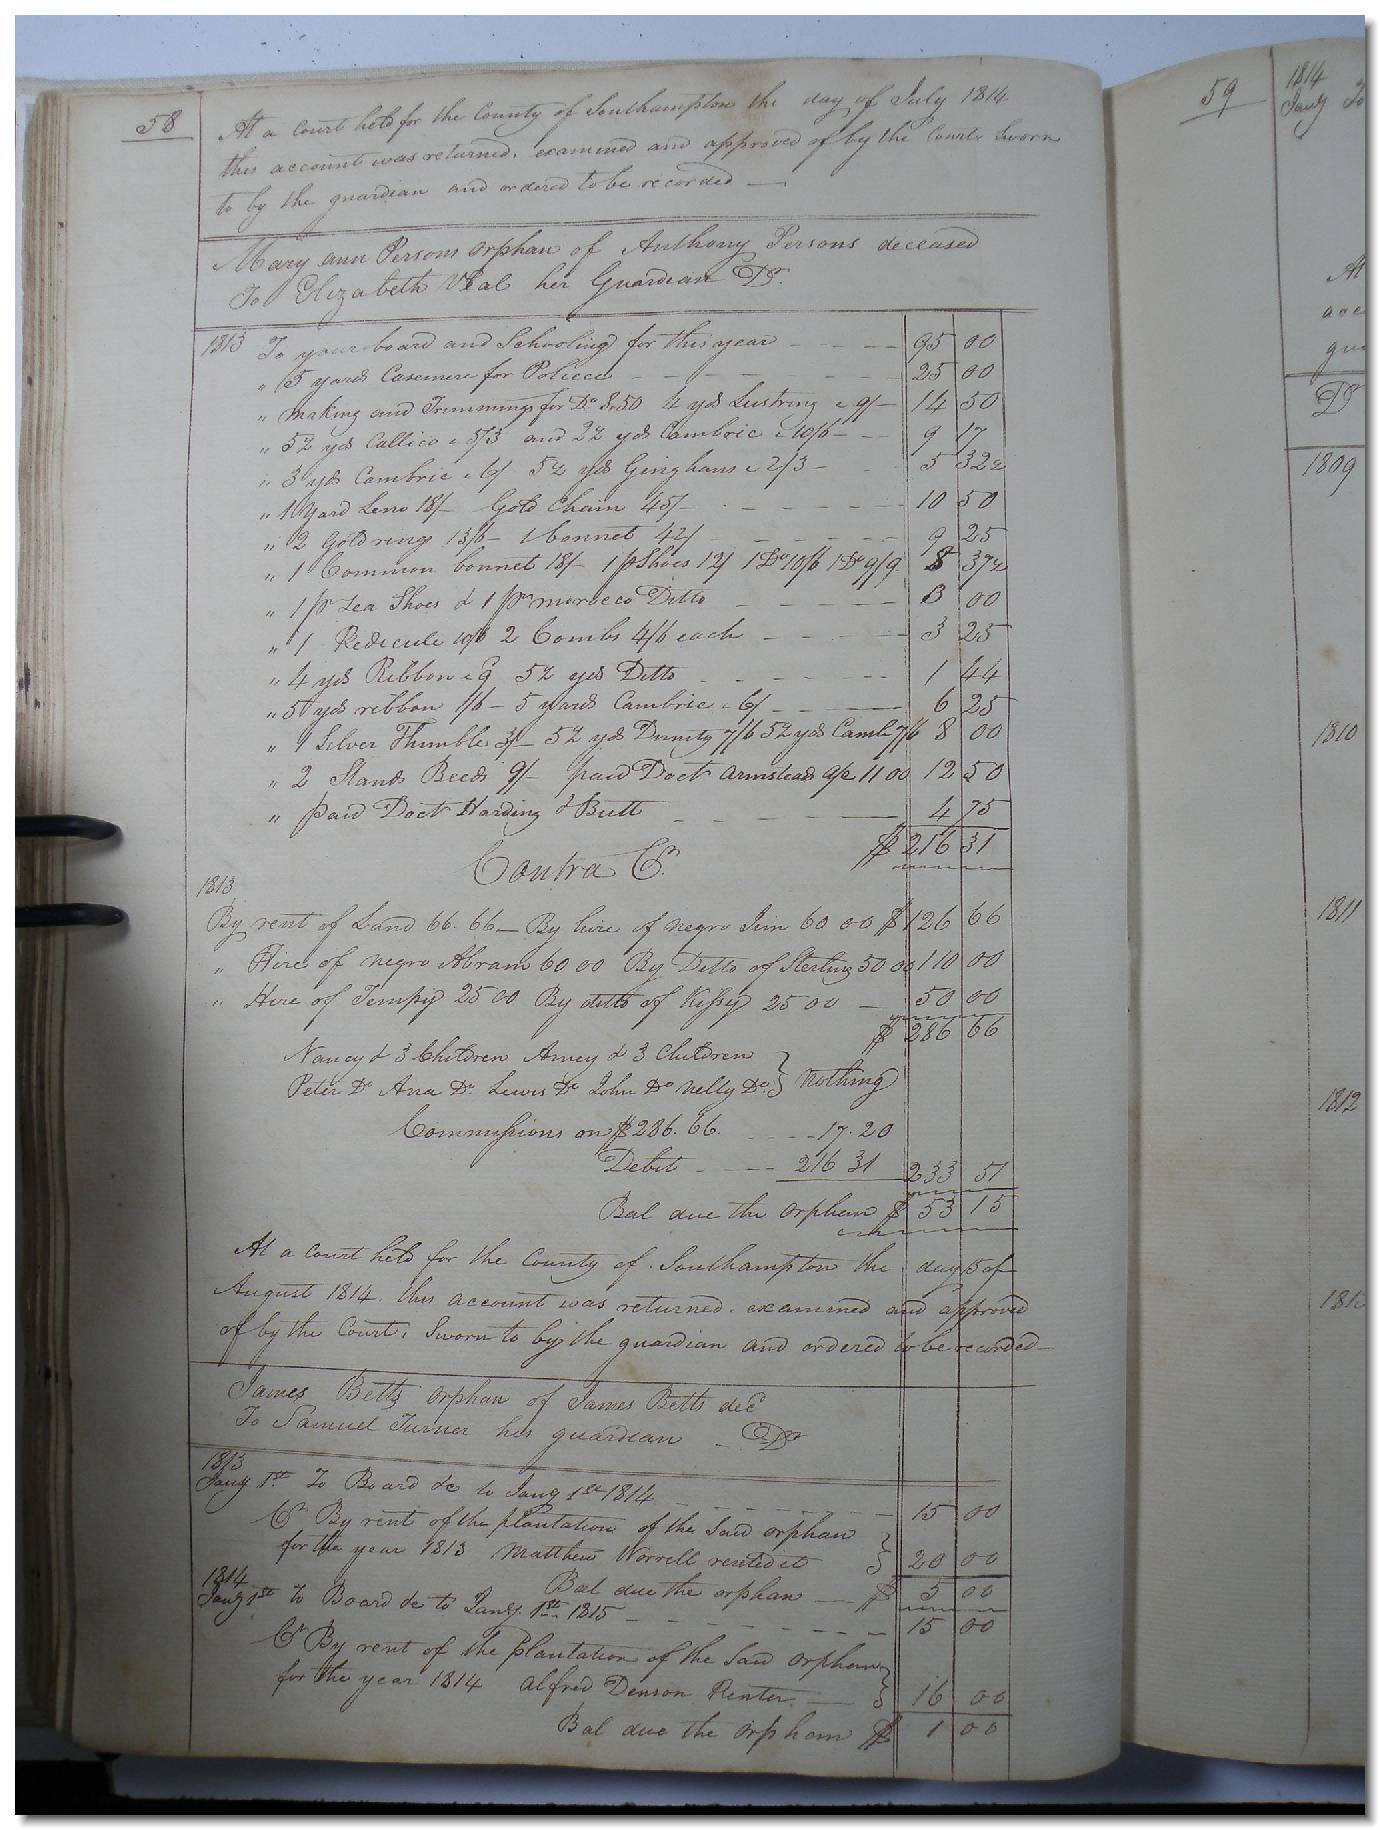 58
At a Court held for the County of Southampton the day of July 1814
this account was returned, examined and approved of by the Court Sworn
to by the guardian and ordered to be recorded —
Mary ann Persons orphan of Anthony Persons deceased
To Elizabeth Vial her Guardian Dr.
1813 To your board and Schooling for this year 95 00
" 5 yards Casemere for Police 25 00
" making and Trimmings for Do 8.50 4 yds Lustring @ 9/– 14 50
" 5½ yds Callico @ 5/3 and 2½ yds Cambric @ 10/6 – 9 17
" 3 yds Cambric @ 6/ 5½ yds Ginghams @ 2/3 – 5 32½
" 1 Yard Leno 18/– Gold Chain 45/– 10 50
" 2 Gold rings 13/6 – 1 bonnet 42/ 9 25
" 1 Common bonnet 18/– 1 pr Shoes 12/ 1 Do 10/6 1 Do 9/9 8 37½
" 1 pr Lea Shoes & 1 pr morocco Ditto 3 00
" 1 Redicule 10/6 2 Combs 4/6 each 3 25
" 4 yds Ribbon @ 9 5½ yds Ditto 1 44
" 5 yds ribbon 1/6 – 5 yards Cambric @ 6/ 6 25
" 1 Silver Thimble 3/– 5½ yds Dimity 7/6 5½ yds Camb 7/6 8 00
" 2 Stands Beeds 9/– paid Doct Armstead a/c 11 00 12 50
" paid Doct Harding & Butt 4 75
$ 216 31
Contra Cr.
1813
By rent of Land 66.66 – By hire of negro Jim 60 00 $ 126 66
" Hire of negro Abram 60 00 By Ditto of Sterling 50 00 110 00
" Hire of Tempy 25 00 By ditto of Kissy 25 00 — 50 00
$ 286 66
Nancy & 3 Children Amey & 3 Children
Peter Do Ana Do. Lewis Do John Do Nelly Do } Nothing
Commissions on $ 286.66. 17.20
Debit 216 31 233 51
Bal due the orphan $ 53 15
At a Court held for the County of Southampton the day 5 of
August 1814. this account was returned. examined and approved
of by the Court, Sworn to by the guardian and ordered to be recorded —
James Betts orphan of James Betts decd
To Samuel Turner his guardian – Dr
1813
Jany 1st. To Board &c to Jany 1st 1814 15 00
Cr By rent of the plantation of the Said orphan
for the year 1813 Matthew Worrell rented it } 20 00
Bal due the orphan — $ 5 00
1814
Jany 1st to Board &c to Jany 1st. 1815 15 00
Cr By rent of the Plantation of the Said orphan
for the year 1814 Alfred Denson Renter } 16 00
Bal due the orphan $ 1 00
59
1814
Jany To
At
acc
gu
Dr
1809
1810
1811
1812
181